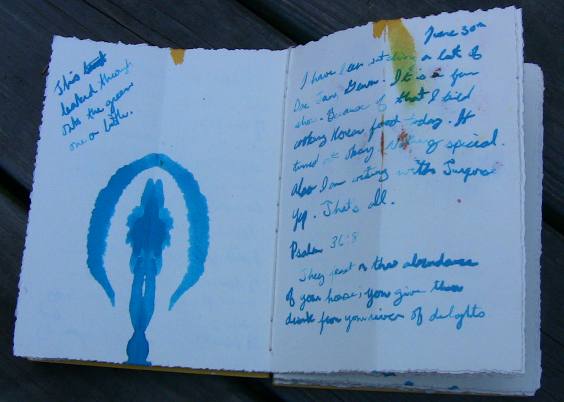 This
leaked through
onto the green
one on left.
June 30th
I have been watching a lot of
Dae Jang Geum. It is a fun
show. Because of that I tried
cooking Korean food today. It
turned out okay. Nothing special.
Also I am writing with
Yep. That's all.
Psalm 36:8
They feast on the abundance
of your house; you give them
drink from your river of delights